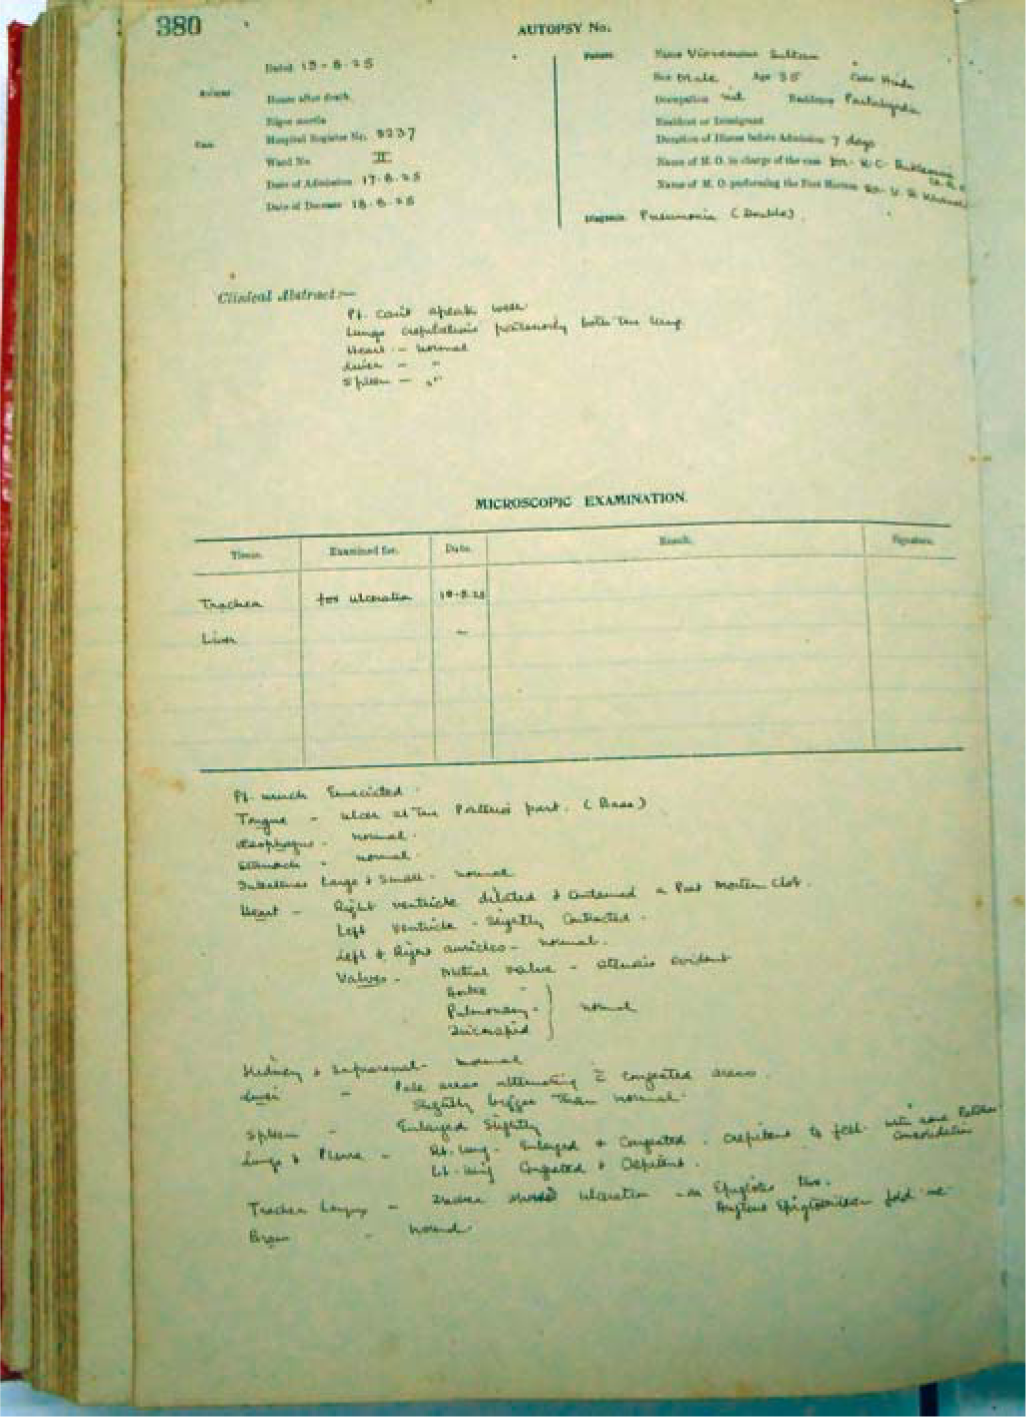 380
AUTOPSY No.
Dated 19-8-25
Hours after death.
Rigor mortis
Hospital Register No. 3237
Ward No. II
Date of Admission 17-8-25
Date of Decease 18-8-25
Name
Sex Male Age 35 Caste
Occupation nil Residence
Resident or Immigrant
Duration of Illness before Admission 7 days
Name of M. O. in charge of the case
Name of M. O. performing the Post Mortem
Diagnosis Pneumonia (Double).
Clinical Abstract:—
Pt. can't speak well
Lungs crepitations posteriorly both the lung.
Heart - normal
Liver - "
Spleen - "
MICROSCOPIC EXAMINATION.
Tissue. Examined for. Date. Result. Signature.
Trachea for ulceration
Liver -
Pt. much Emaciated.
Tongue - ulcer at the Posterior part. (Base)
Oesophagus - normal.
Stomach - normal.
Intestines Large & Small - normal
Heart - Right ventricle dilated & contained a Post Mortem Clot.
Left ventricle - slightly contracted.
Left & Right auricles - normal.
Valves - Mitral valve - evident
Aortic -
Pulmonary - normal
Tricuspid
Kidney & Suprarenal - normal
Liver - Pale areas alternating c̄ congested areas.
Slightly bigger than normal.
Spleen - Enlarged Slightly
Lungs & Pleura - Rt. lung - Enlarged & Congested. crepitant to feel with some
consolidation
Lt. lung Congested & Crepitant.
Trachea Larynx - showed ulceration
Brain - normal